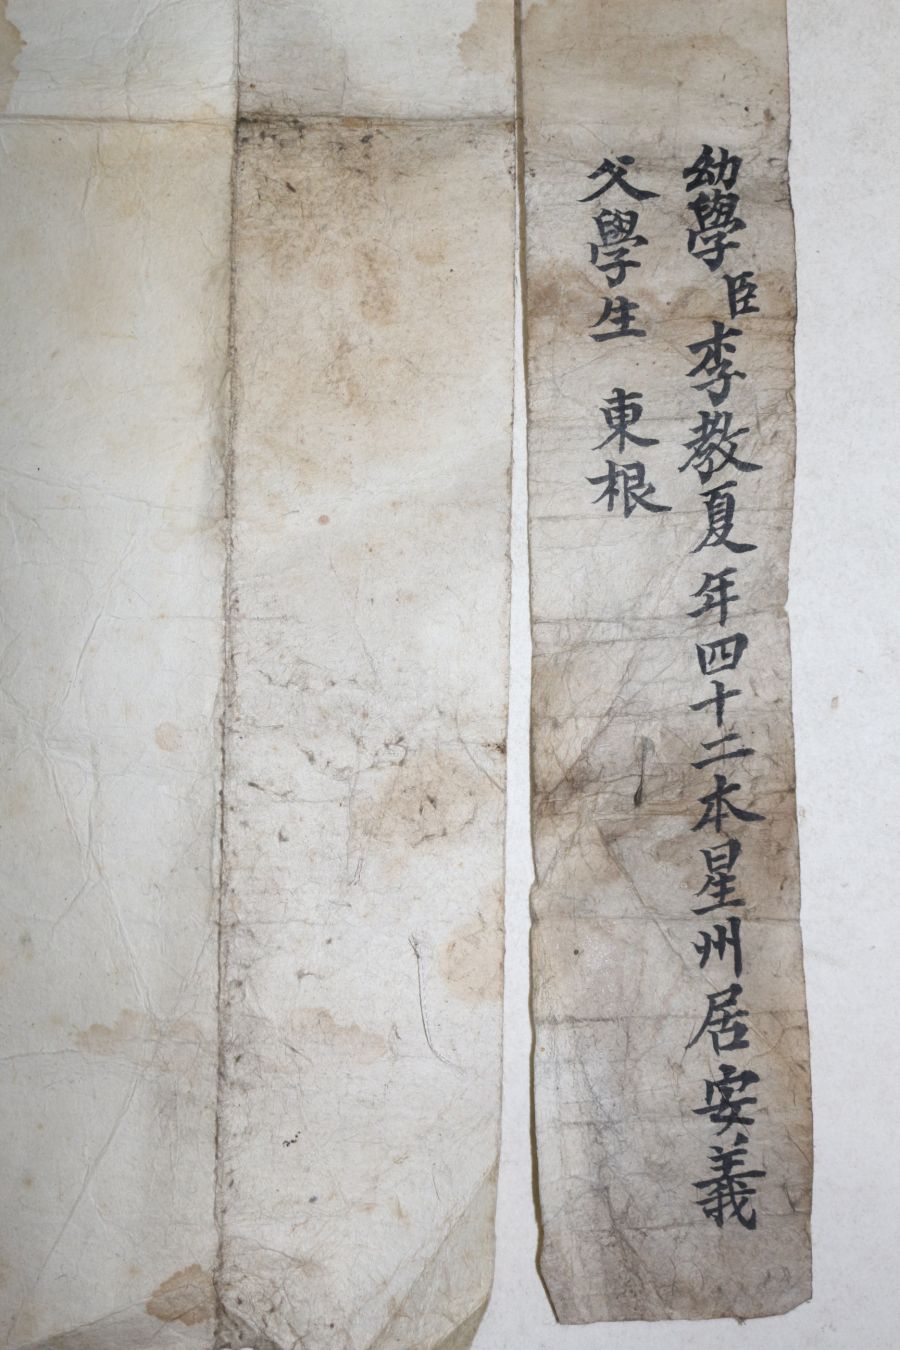 幼學臣李教夏年四十二本星州居安義
父學生 東根